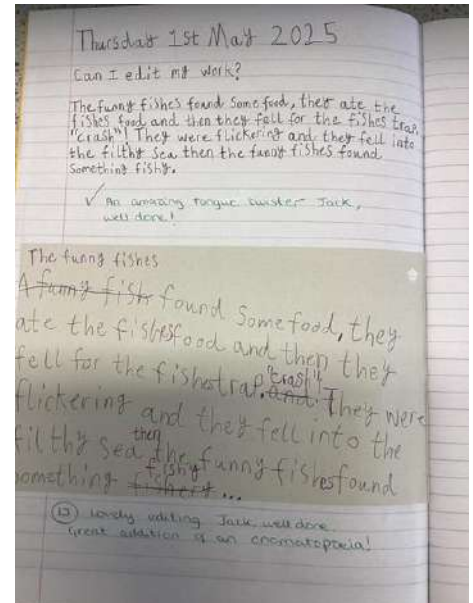 Thursday 1st May 2025
Can I edit my work?
The funny fishes found some food, they ate the
fishes food and then they fell for the fishes trap.
"crash"! They were flickering and they fell into
the filthy sea then the funny fishes found
something fishy.
✓ An amazing tongue twister Jack,
well done!
The funny fishes
A funny fish found some food, they
ate the fishes food and then they
fell for the fishes trap. "crash"! and. They were
flickering and they fell into the
filthy sea then the funny fishes found
something fishy ...
Lovely editing Jack, well done.
Great addition of an onomatopoeia!